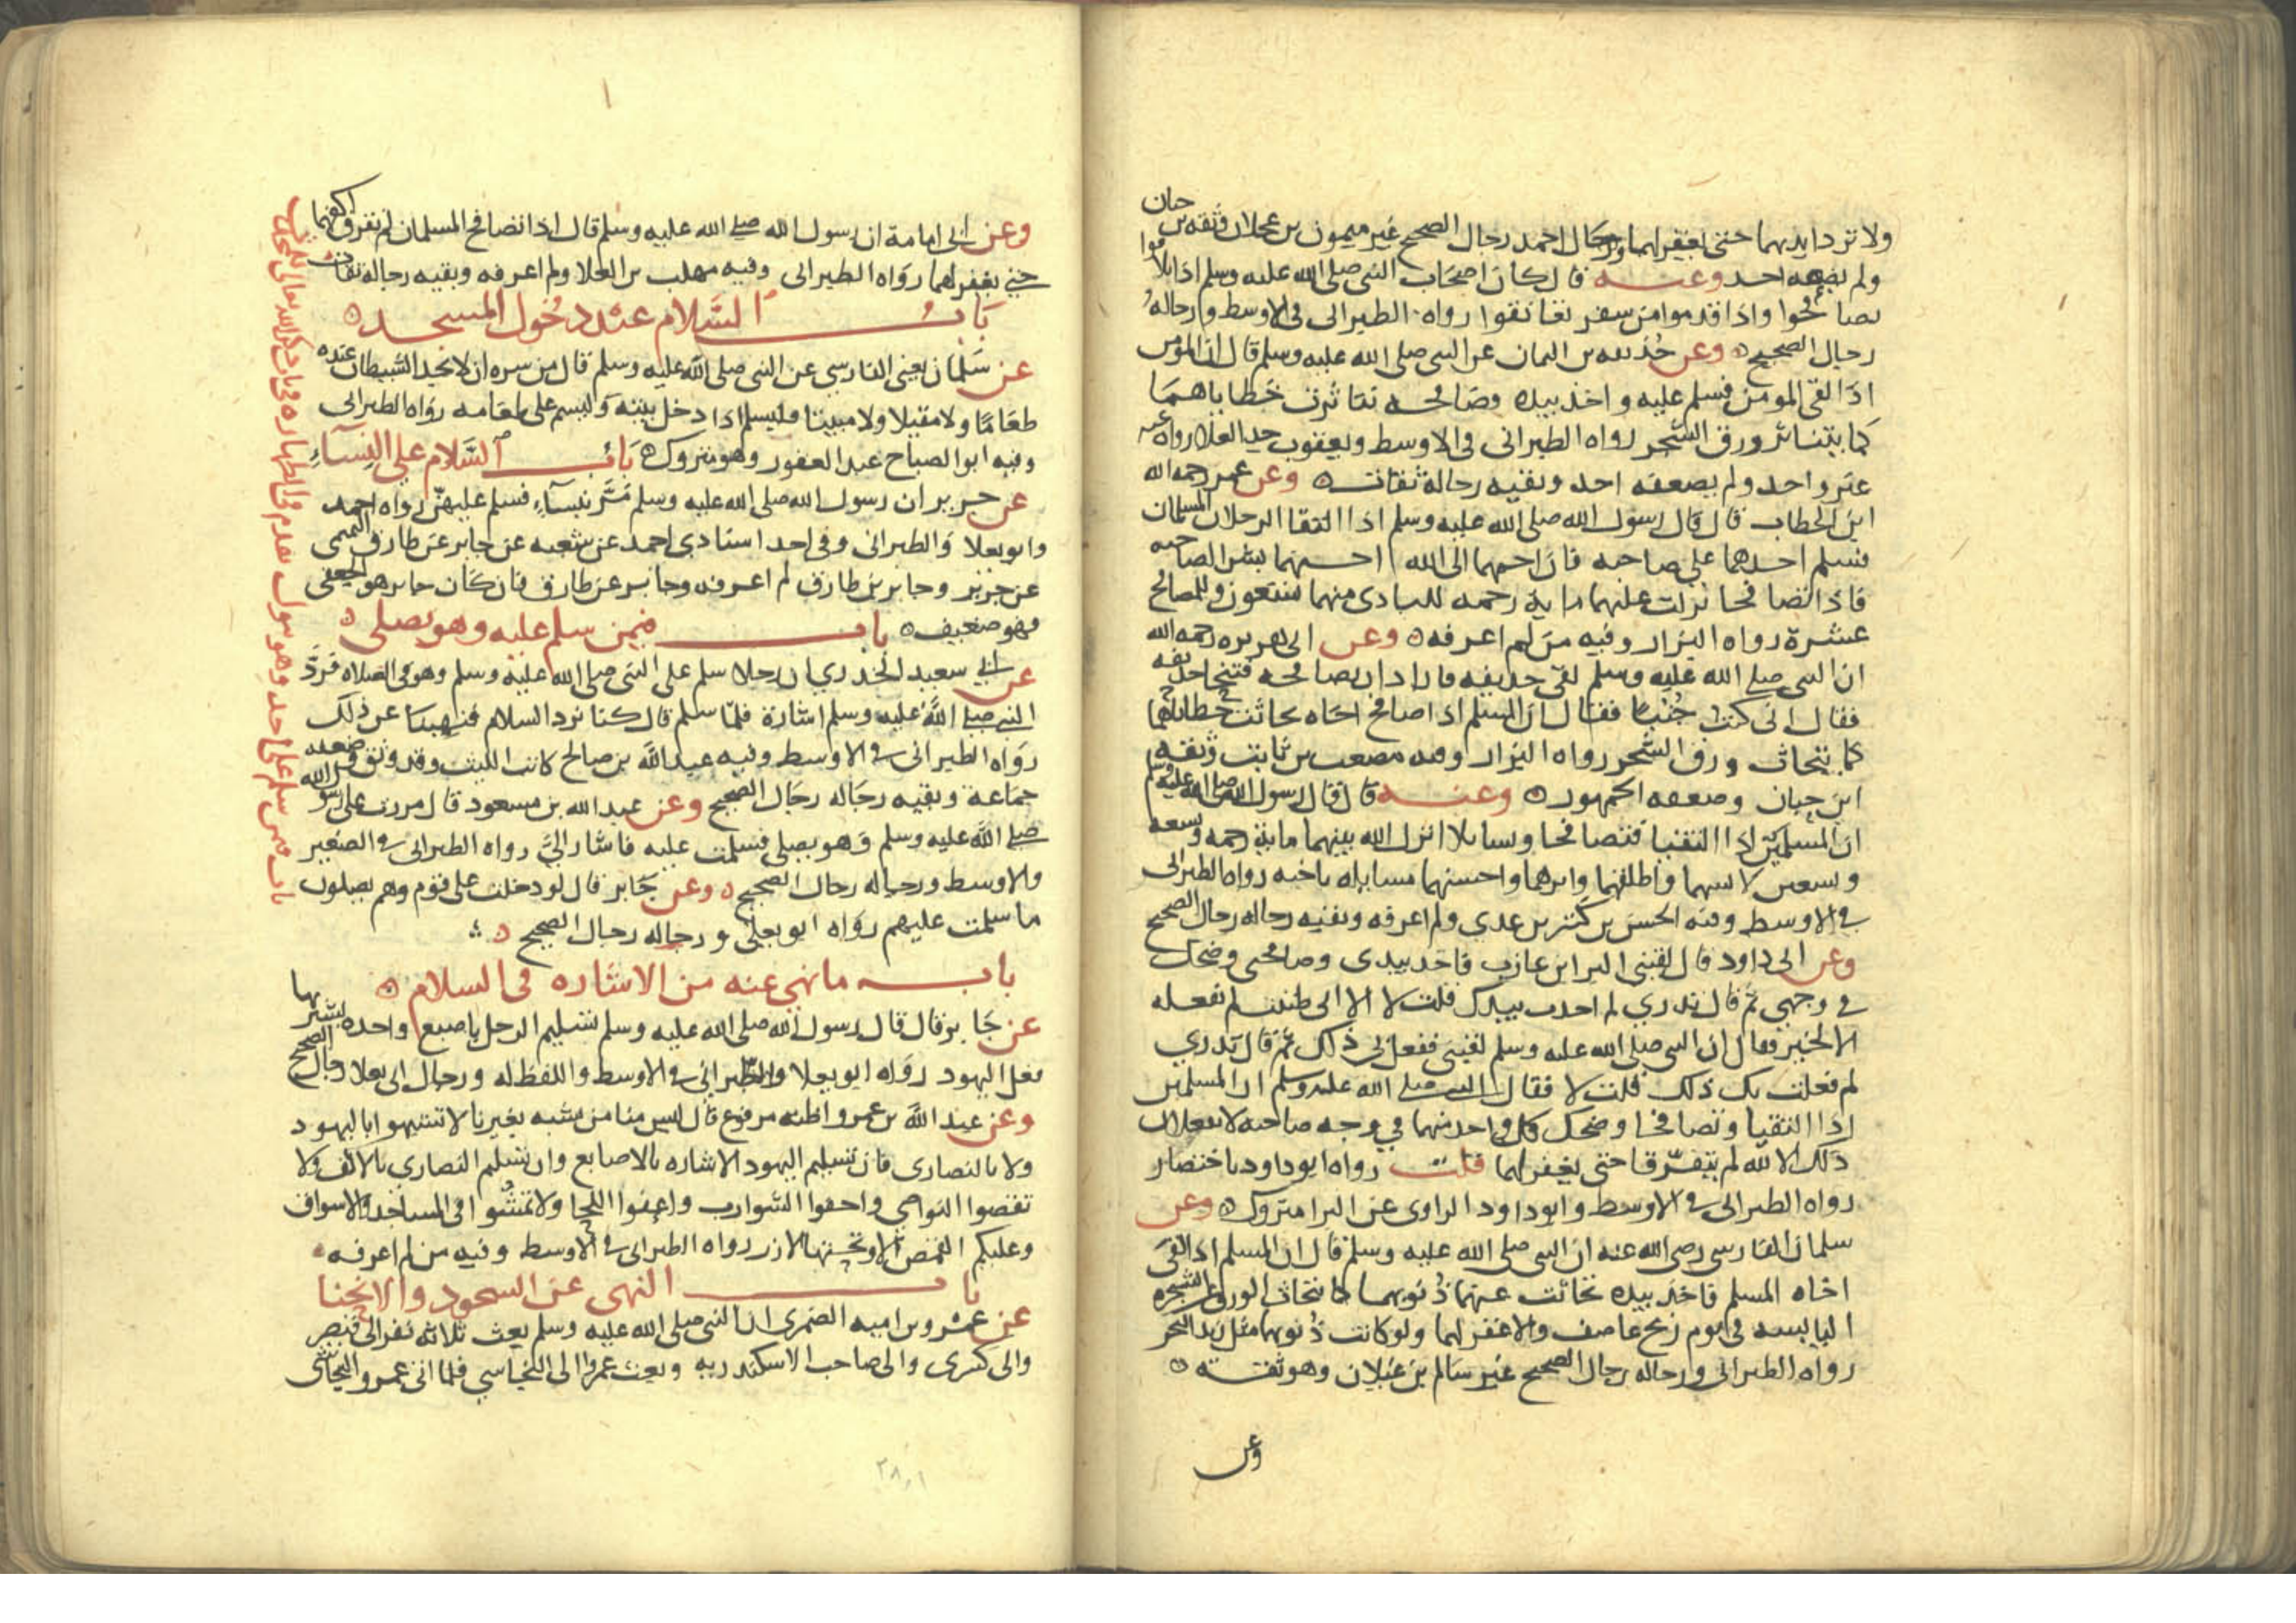 ولا ترد ايديهما حتى يغفر لهما ورجال احمد رجال الصحيح غير ميمون بن عجلان وثقه بن حبان
ولم يضعفه احد وعنه قال كان اصحاب النبي صلى الله عليه وسلم اذا تلاقوا
تصافحوا واذا قدموا من سفر تعانقوا رواه الطبراني في الاوسط ورجاله
رجال الصحيح وعن حذيفه بن اليمان عن النبي صلى الله عليه وسلم قال ان المومن
اذا لقي المومن فسلم عليه واخذ بيده وصافحه تناثرت خطاياهما
كما يتناثر ورق الشجر رواه الطبراني في الاوسط ويعقوب رواه عنه
غير واحد ولم يضعفه احد وبقيه رجاله ثقات وعن عمر رحمه الله
ابن الخطاب قال قال رسول الله صلى الله عليه وسلم اذا التقا الرجلان المسلمان
فسلم احدهما على صاحبه فان احبهما الى الله احسنهما بشرا لصاحبه
فاذا تصافحا نزلت عليهما ماية رحمه للبادي منهما تسعون وللمصافح
عشرة رواه البزار وفيه من لم اعرفه وعن ابي هريره رحمه الله
ان النبي صلى الله عليه وسلم لقي حذيفه فاراد ان يصافحه فتنحا حذيفه
فقال اني كنت جنبا فقال ان المسلم اذا صافح اخاه تحاتت خطاياهما
كما يتحات ورق الشجر رواه البزار وفيه مصعب بن ثابت وثقه
ابن حبان وضعفه الجمهور وعنه قال قال رسول الله صلى الله عليه وسلم
ان المسلمين اذا التقيا فتصافحا وتسايلا انزل الله بينهما ماية رحمه تسعه
وتسعين لابشهما واطلقهما وابرهما واحسنهما مسايله باخيه رواه الطبراني
في الاوسط وفيه الحسن بن كثير بن عدي ولم اعرفه وبقيه رجاله رجال الصحيح
وعن ابي داود قال لقيني البرا بن عازب فاخذ بيدي وصافحني وضحك
في وجهي ثم قال تدري لم اخذت بيدك قلت لا الا اني ظننت لم تفعله
الا لخير فقال ان النبي صلى الله عليه وسلم لقيني ففعل بي ذلك ثم قال تدري
لم فعلت بك ذلك قلت لا فقال النبي صلى الله عليه وسلم ان المسلمين
اذا التقيا وتصافحا وضحك كل واحد منهما في وجه صاحبه لا يفعلان
ذلك الا لله لم يتفرقا حتى يغفر لهما قلت رواه ابو داود باختصار
رواه الطبراني في الاوسط وابو داود الراوي عن البرا متروك وعن
سلمان الفارسي رضي الله عنه ان النبي صلى الله عليه وسلم قال ان المسلم اذا لقي
اخاه المسلم فاخذ بيده تحاتت عنهما ذنوبهما كما يتحات الورق عن الشجره
اليابسه في يوم ريح عاصف والا غفر لهما ولو كانت ذنوبهما مثل زبد البحر
رواه الطبراني ورجاله رجال الصحيح غير سالم بن غيلان وهو ثقه
وعن
وعن ابي امامة ان رسول الله صلى الله عليه وسلم قال اذا تصافح المسلمان لم تفرق اكفهما
حتى يغفر لهما رواه الطبراني وفيه مهلب بن العلا ولم اعرفه وبقيه رجاله ثقات
باب السلام عند دخول المسجد
عن سلمان يعني الفارسي عن النبي صلى الله عليه وسلم قال من سره ان لا يجد الشيطان عنده
طعاما ولا مقيلا ولا مبيتا فليسلم اذا دخل بيته وليسم على طعامه رواه الطبراني
وفيه ابو الصباح عبد الغفور وهو متروك باب السلام على النساء
عن جرير ان رسول الله صلى الله عليه وسلم مر بنساء فسلم عليهن رواه احمد
وابو يعلا والطبراني وفي احد اسنادي احمد عن شعبه عن جابر عن طارق التميمي
عن جرير وجابر بن طارق لم اعرفه وجابر عن طارق فان كان جابر هو الجعفي
فهو ضعيف باب فيمن سلم عليه وهو يصلي
عن ابي سعيد الخدري ان رجلا سلم على النبي صلى الله عليه وسلم وهو في الصلاه فرد
النبي صلى الله عليه وسلم اشارة فلما سلم قال كنا نرد السلام فنهينا عن ذلك
رواه الطبراني في الاوسط وفيه عبد الله بن صالح كاتب الليث وقد وثق وضعفه
جماعة وبقيه رجاله رجال الصحيح وعن عبد الله بن مسعود قال مررت على رسول الله
صلى الله عليه وسلم وهو يصلي فسلمت عليه فاشار الي رواه الطبراني في الصغير
والاوسط ورجاله رجال الصحيح وعن جابر قال لو دخلت على قوم وهم يصلون
ما سلمت عليهم رواه ابو يعلى ورجاله رجال الصحيح
باب ما نهي عنه من الاشاره في السلام
عن جابر قال قال رسول الله صلى الله عليه وسلم تسليم الرجل باصبع واحده يشير بها
فعل اليهود رواه ابو يعلا والطبراني في الاوسط واللفظ له ورجال ابي يعلا رجال الصحيح
وعن عبد الله بن عمرو اظنه مرفوع قال ليس منا من شبه بغيرنا لا تشبهوا باليهود
ولا بالنصارى فان تسليم اليهود الاشاره بالاصابع وان تسليم النصاري بالاكف ولا
تقصوا النواصي واحفوا الشوارب واعفوا اللحا ولا تمشوا في المساجد والاسواق
وعليكم القمص الا وتحتها الازر رواه الطبراني في الاوسط وفيه من لم اعرفه
باب النهي عن السجود والانحنا
عن عمرو بن اميه الضمري ان النبي صلى الله عليه وسلم بعث ثلاثه نفر الى قيصر
والى كسرى والى صاحب الاسكندريه وبعث عمروا الى النجاسي فلما اتى عمرو النجاشي
باب فيمن سلم على احد وهو يبول تقدم في الطهاره في باب ذكر الله تعالى